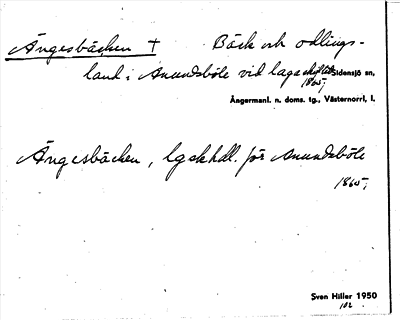 Ängesbäcken † Bäck och odlings-
land i Anundsböle vid laga skiftet Sidensjö sn,
1865;
Ångermanl. n. doms. tg., Västernorrl. l.
Ängesbäcken, Lgskhdl. för Anundsböle
1865;
Sven Hiller 1950
102